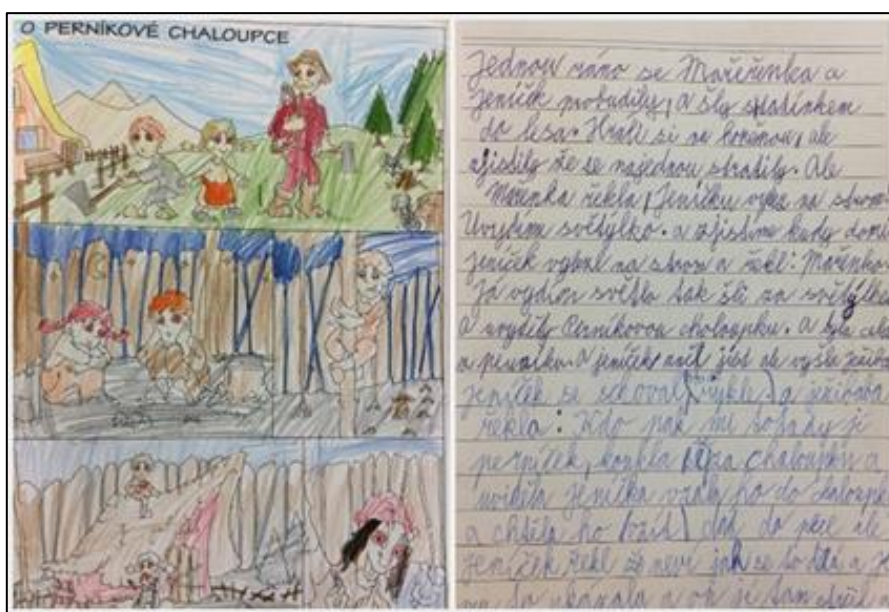 O PERNÍKOVÉ CHALOUPCE
Jednou ráno se Mařeřenka a
Jeníček probudily, a šly statínkem
do lesa. Hráli si na honěnou, ale
zjistily že se najednou stratily. Ale
Mařenka řekla, Jeníčku na strom
Uvydím světýlko. a zjistíme kudy domů
Jeníček vylezl na strom a řekl: Mařenko
Já vydím světlo tak šli za světýlkem
a uvydily Perníkovou chaloupku. a byla celá
a perníku. a jeníček jíst ale vyšla
Jeníček se schoval (rychle) a ježibaba
řekla: Kdo pak mi tady jí
perníček, koukla za chaloupku a
uviděla Jeníčka vzala ho do chaloupky
a chtěla ho dát do pece ale
Jeníček řekl že neví jak se to dělá a
to ukázala a on ji tam